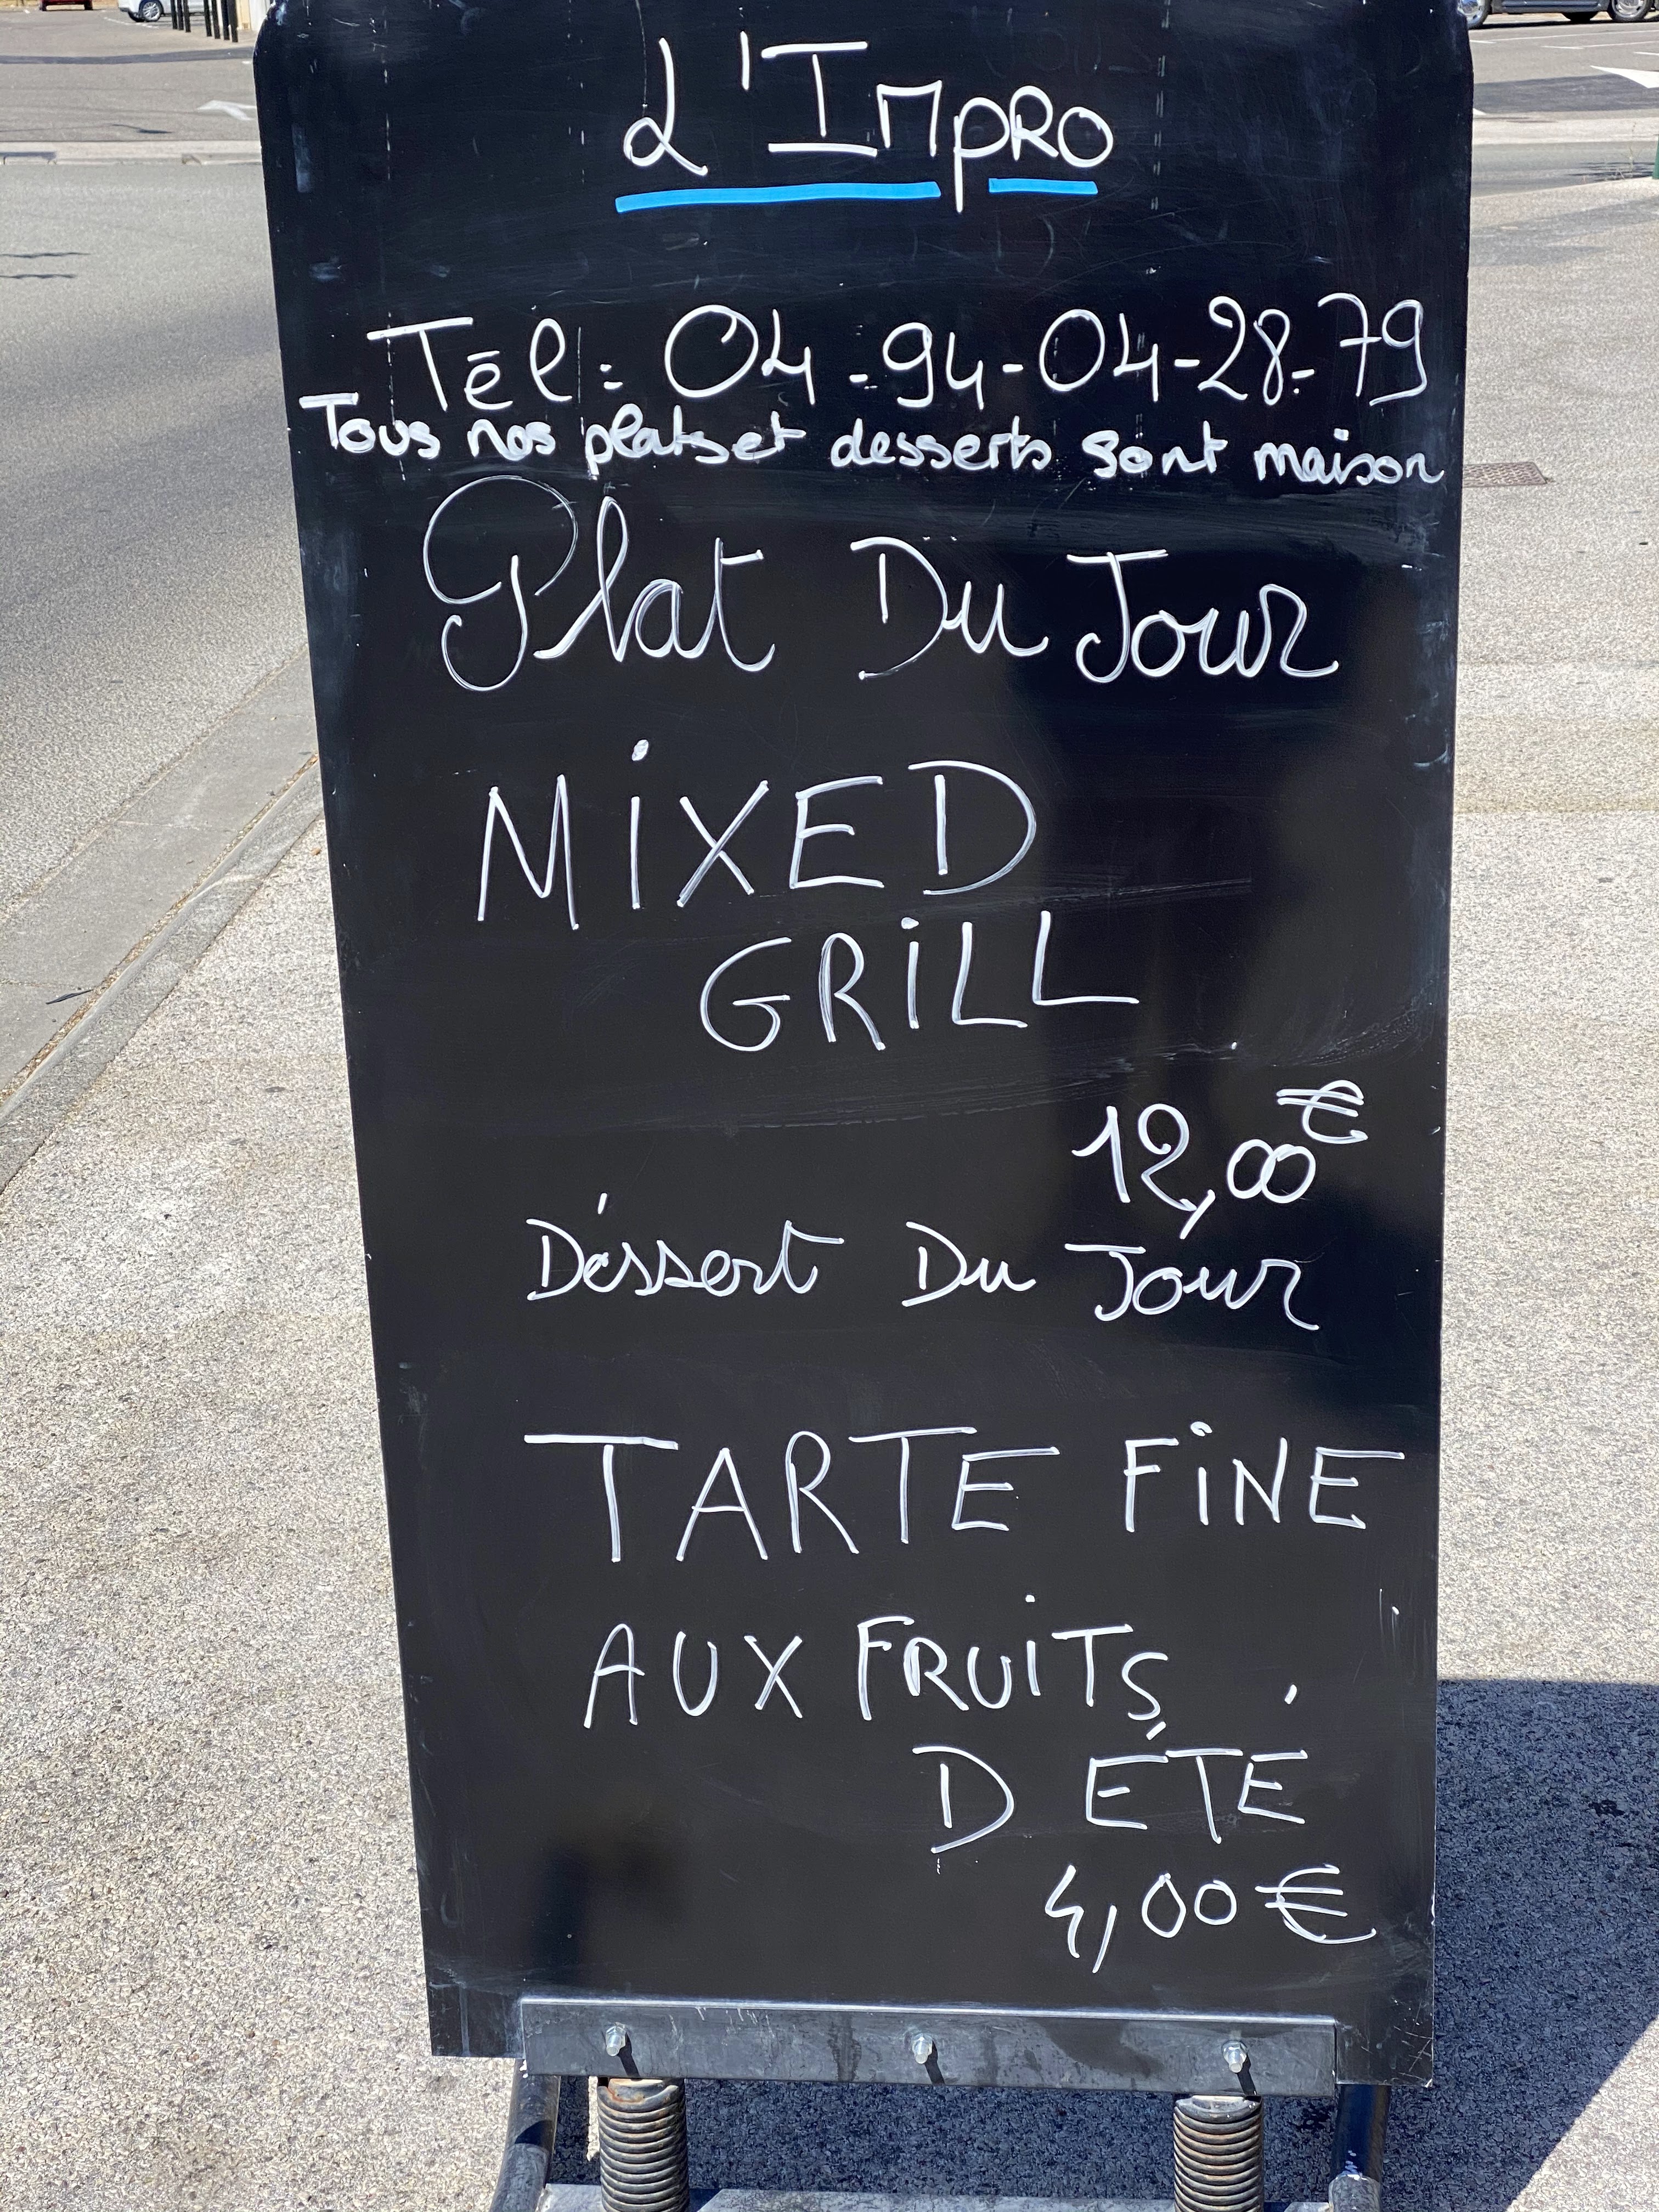 L'Impro
Tél: 04-94-04-28-79
Tous nos plats et desserts sont maison
Plat Du Jour
MiXED
GRiLL
12,00€
Déssert Du Jour
TARTE FiNE
AUX FRUiTS
D'ÉTÉ
4,00€